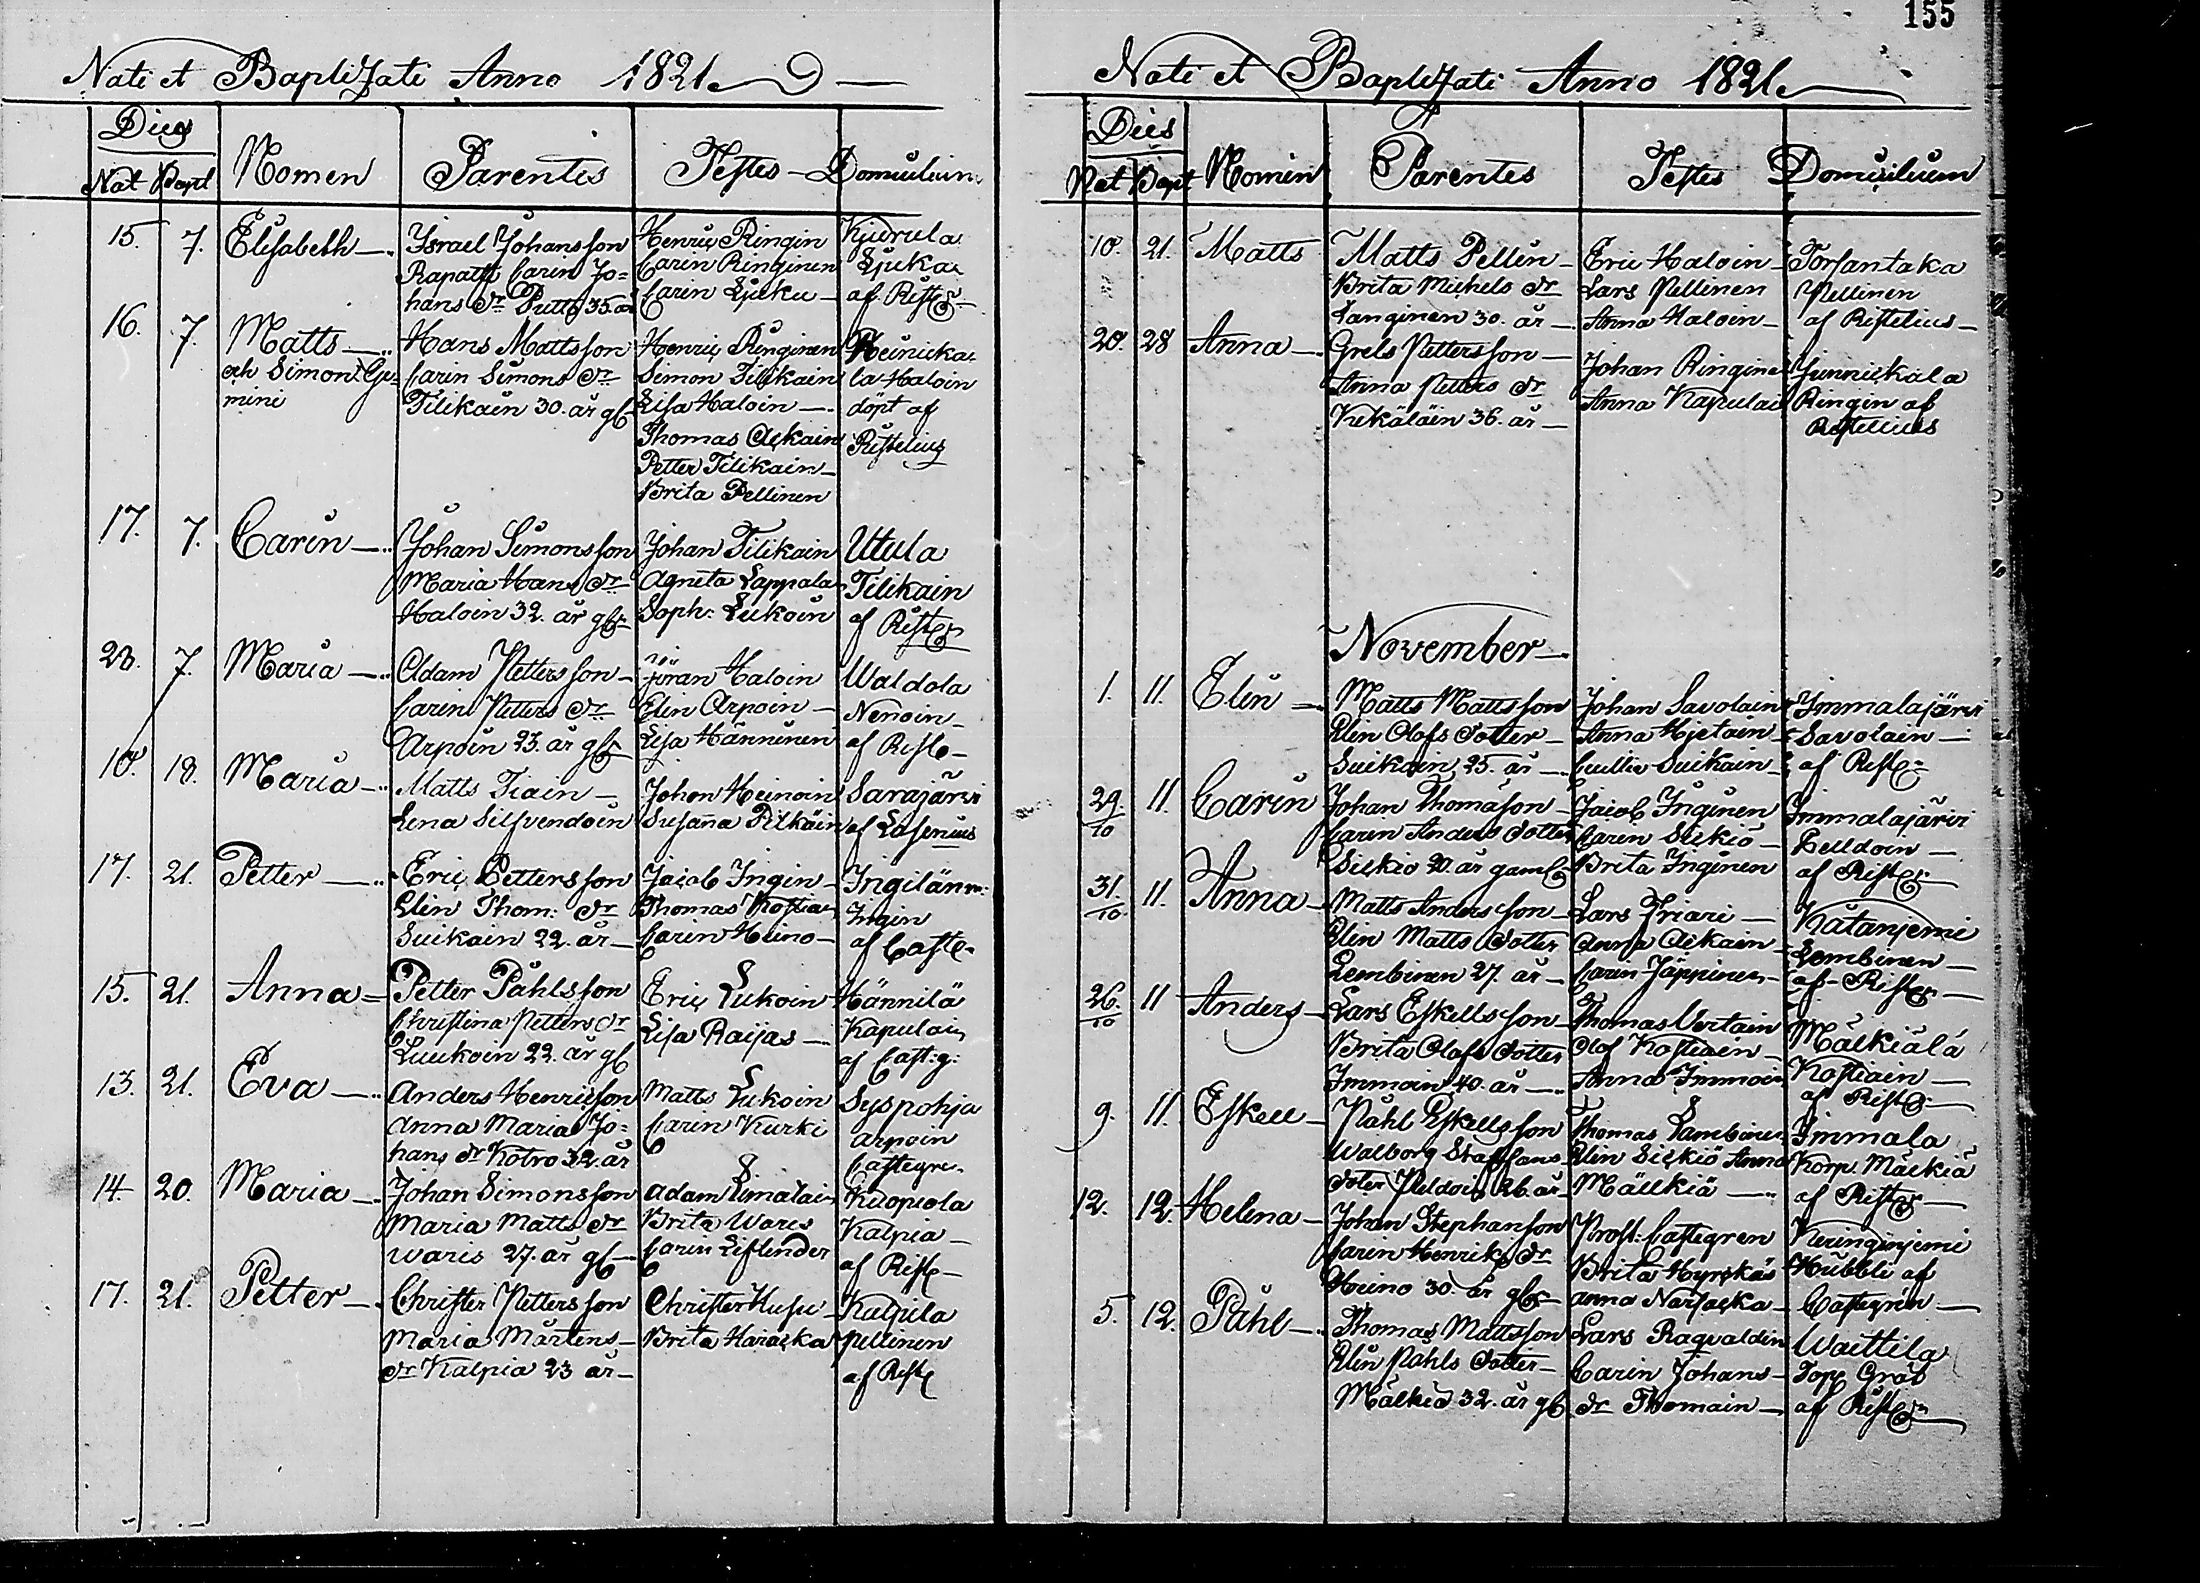 155
Nati et Baptizati Anno 1821
Dies
Nat Bapt Nomen Parentes Testes Domicilium
15. 7. Elisabeth Israel Johansson Henric Ringin Kjurula
Rapatti Carin Jo= Carin Ringinen Ljuka
hans dr Putto 35. år Carin Ljuku af Riste
16. 7. Matts Hans Mattsson Henric Ringinen Heinicka
och Simon Ge= Carin Simons dr Simon Tilikain la Haloin
mini Tilikain 30. år gl Lisa Haloin döpt af
Thomas Ackain Ristelius
Petter Tilikain
Brita Pellinen
17. 7. Carin Johan Simonsson Johan Tilikain Utula
Maria Hans dr Agneta Lappala Tilikain
Haloin 32. år gl Soph: Lukoin af Rist
23. 7. Maria Adam Pettersson Jöran Haloin Waldola
Carin Petters dr Elin Arpoin Nenoin
Arpoin 23. år gl Lisa Hänninen af Riste
10. 18. Maria Matts Tiain Johan Heinoin Sarajärvi
Lena Silfvendoin Susanna Pilkäin af Lasenius
17. 21. Petter Eric Pettersson Jacob Ingin Ingilänm:
Elin Thom: dr Thomas Kostia Ingin
Suikain 22. år Carin Heino af Caste
15. 21. Anna Petter Påhlsson Eric Lukoin Hännilä
Christina Petters dr Lisa Raijas Kapulain
Luukoin 22. år gl af Cast:g:
13. 21. Eva Anders Henricsson Matts Lukoin Syspohja
Anna Maria Jo= Carin Kurki Arpoin
hans dr Kotro 32. år Castegre
14 20. Maria Johan Simonsson Adam Limatain Kuopiola
Maria Matts dr Brita Wares Kalpia
Waris 27. år gl Carin Liflender af Riste
17. 21. Petter Christer Pettersson Christer Husu Kalpila
Maria Mårtens Brita Haracka Pellinen
dr Kalpia 23 år af Rist
Nati et Baptizati Anno 1821
Dies
Nat Bapt Nomen Parentes Testes Domicilium
10. 21. Matts Matts Pellin Eric Haloin Torsantaka
Brita Michels dr Lars Pellinen Pellinen
Tanginen 30. år Anna Haloin af Ristelius
20. 28 Anna Grels Pettersson Johan Ringinen Junnickala
Anna Petters dr Anna Kapulain Ringin af
Kekäläin 36. år Ristelius
November
1. 11. Elin Matts Mattsson Johan Savolain Immalajärvi
Elin Olofs dotter Anna Hjetain Savolain
Suikain 25. år Suikain af Rist
29/10 11. Carin Johan Thomasson Jacob Inginen Immalajärvi
Carin Anders dotter Carin Sickiö Pelldoin
Sickiö 20. år gaml Brita Inginen af Rist
31/10 11. Anna Matts Andersson Lars Friari Kätanjemi
Elin Matts dotter Anna Ackain Lembinen
Lembinen 27. år Carin Jäppinen af Rist
26/10 11 Anders Lars Eskellsson Thomas Vertain Mälkiälä
Brita Olofs dotter Olof Kostiain Kostiain
Immoin 40. år Anna Immoin af Rist
9. 11. Eskell Påhl Eskellsson Thomas Lambinen Immala
Walborg Staffans Elin Sickiö Anna Korp. Mälkiä
doter Peldoin 26. år Mällkiä af Rist
12. 12. Helena Johan Stephansson Prost: Castegren Keringinjemi
Carin Henriks dr Brita Hyrckäs Hübbli af
Heino 30. år gl Anna Narsacka Castegrén
5. 12. Påhl Thomas Mattsson Lars Ragvaldin Waittila
Elin Påhls dotter Carin Johans Topp Gråb
Mälkiä 32. år gl dr Thomain af Rist